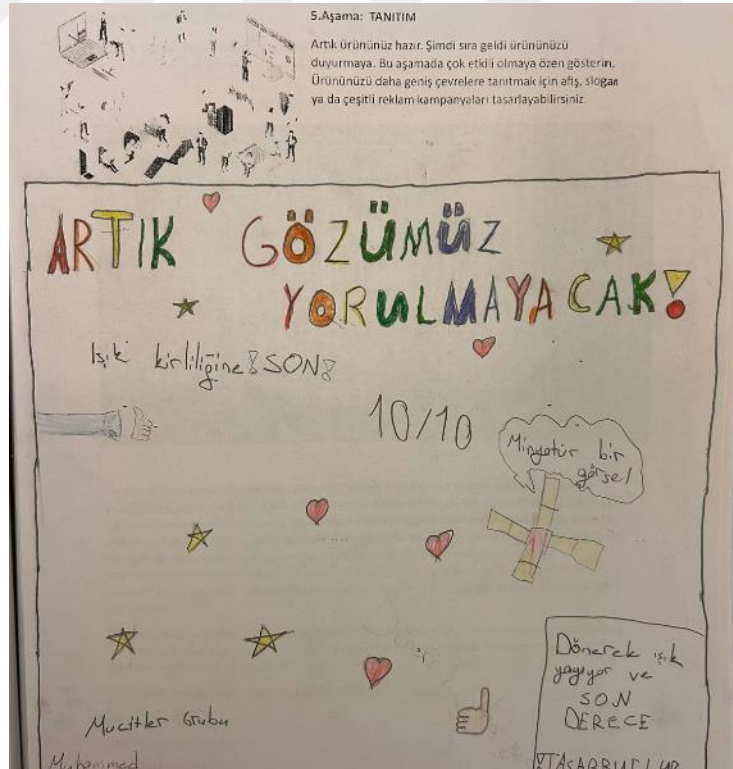 5.Aşama: TANITIM
Artık ürününüz hazır. Şimdi sıra geldi ürününüzü
duyurmaya. Bu aşamada çok etkili olmaya özen gösterin.
Ürününüzü daha geniş çevrelere tanıtmak için afiş, slogan
ya da çeşitli reklam kampanyaları tasarlayabilirsiniz.
ARTIK GÖZÜMÜZ
YORULMAYACAK!
Işık kirliliğine!SON!
10/10
Minyatür bir
görsel
Dönerek ışık
yayıyor ve
SON
DERECE
TASARRUFLUR
Mucitler Grubu
Muhammed